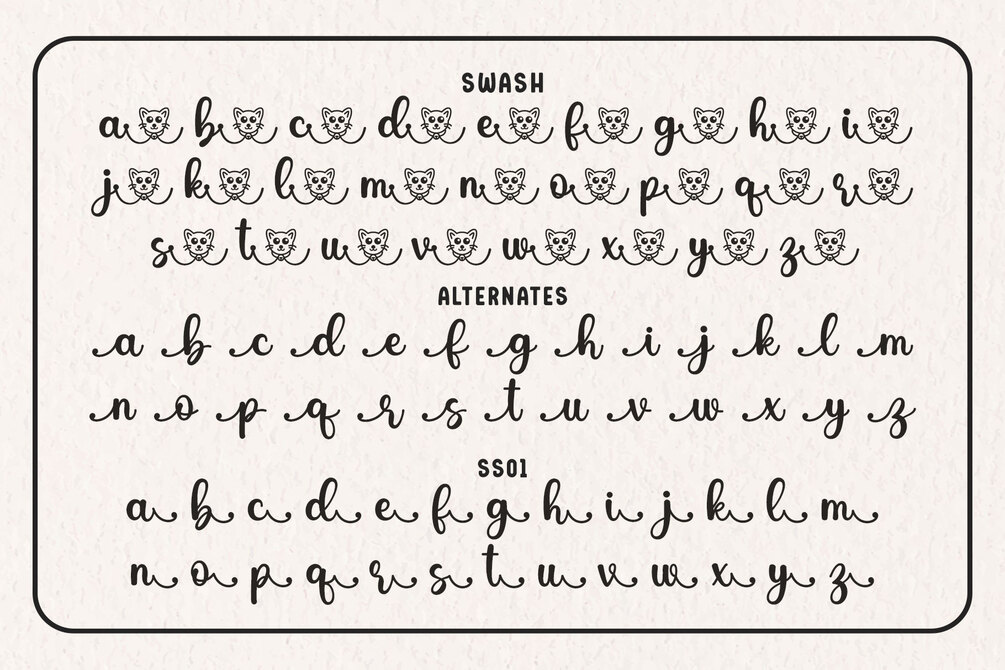 SWASH
a b c d e f g h i
j k l m n o p q r
s t u v w x y z
ALTERNATES
a b c d e f g h i j k l m
n o p q r s t u v w x y z
SS01
a b c d e f g h i j k l m
n o p q r s t u v w x y z